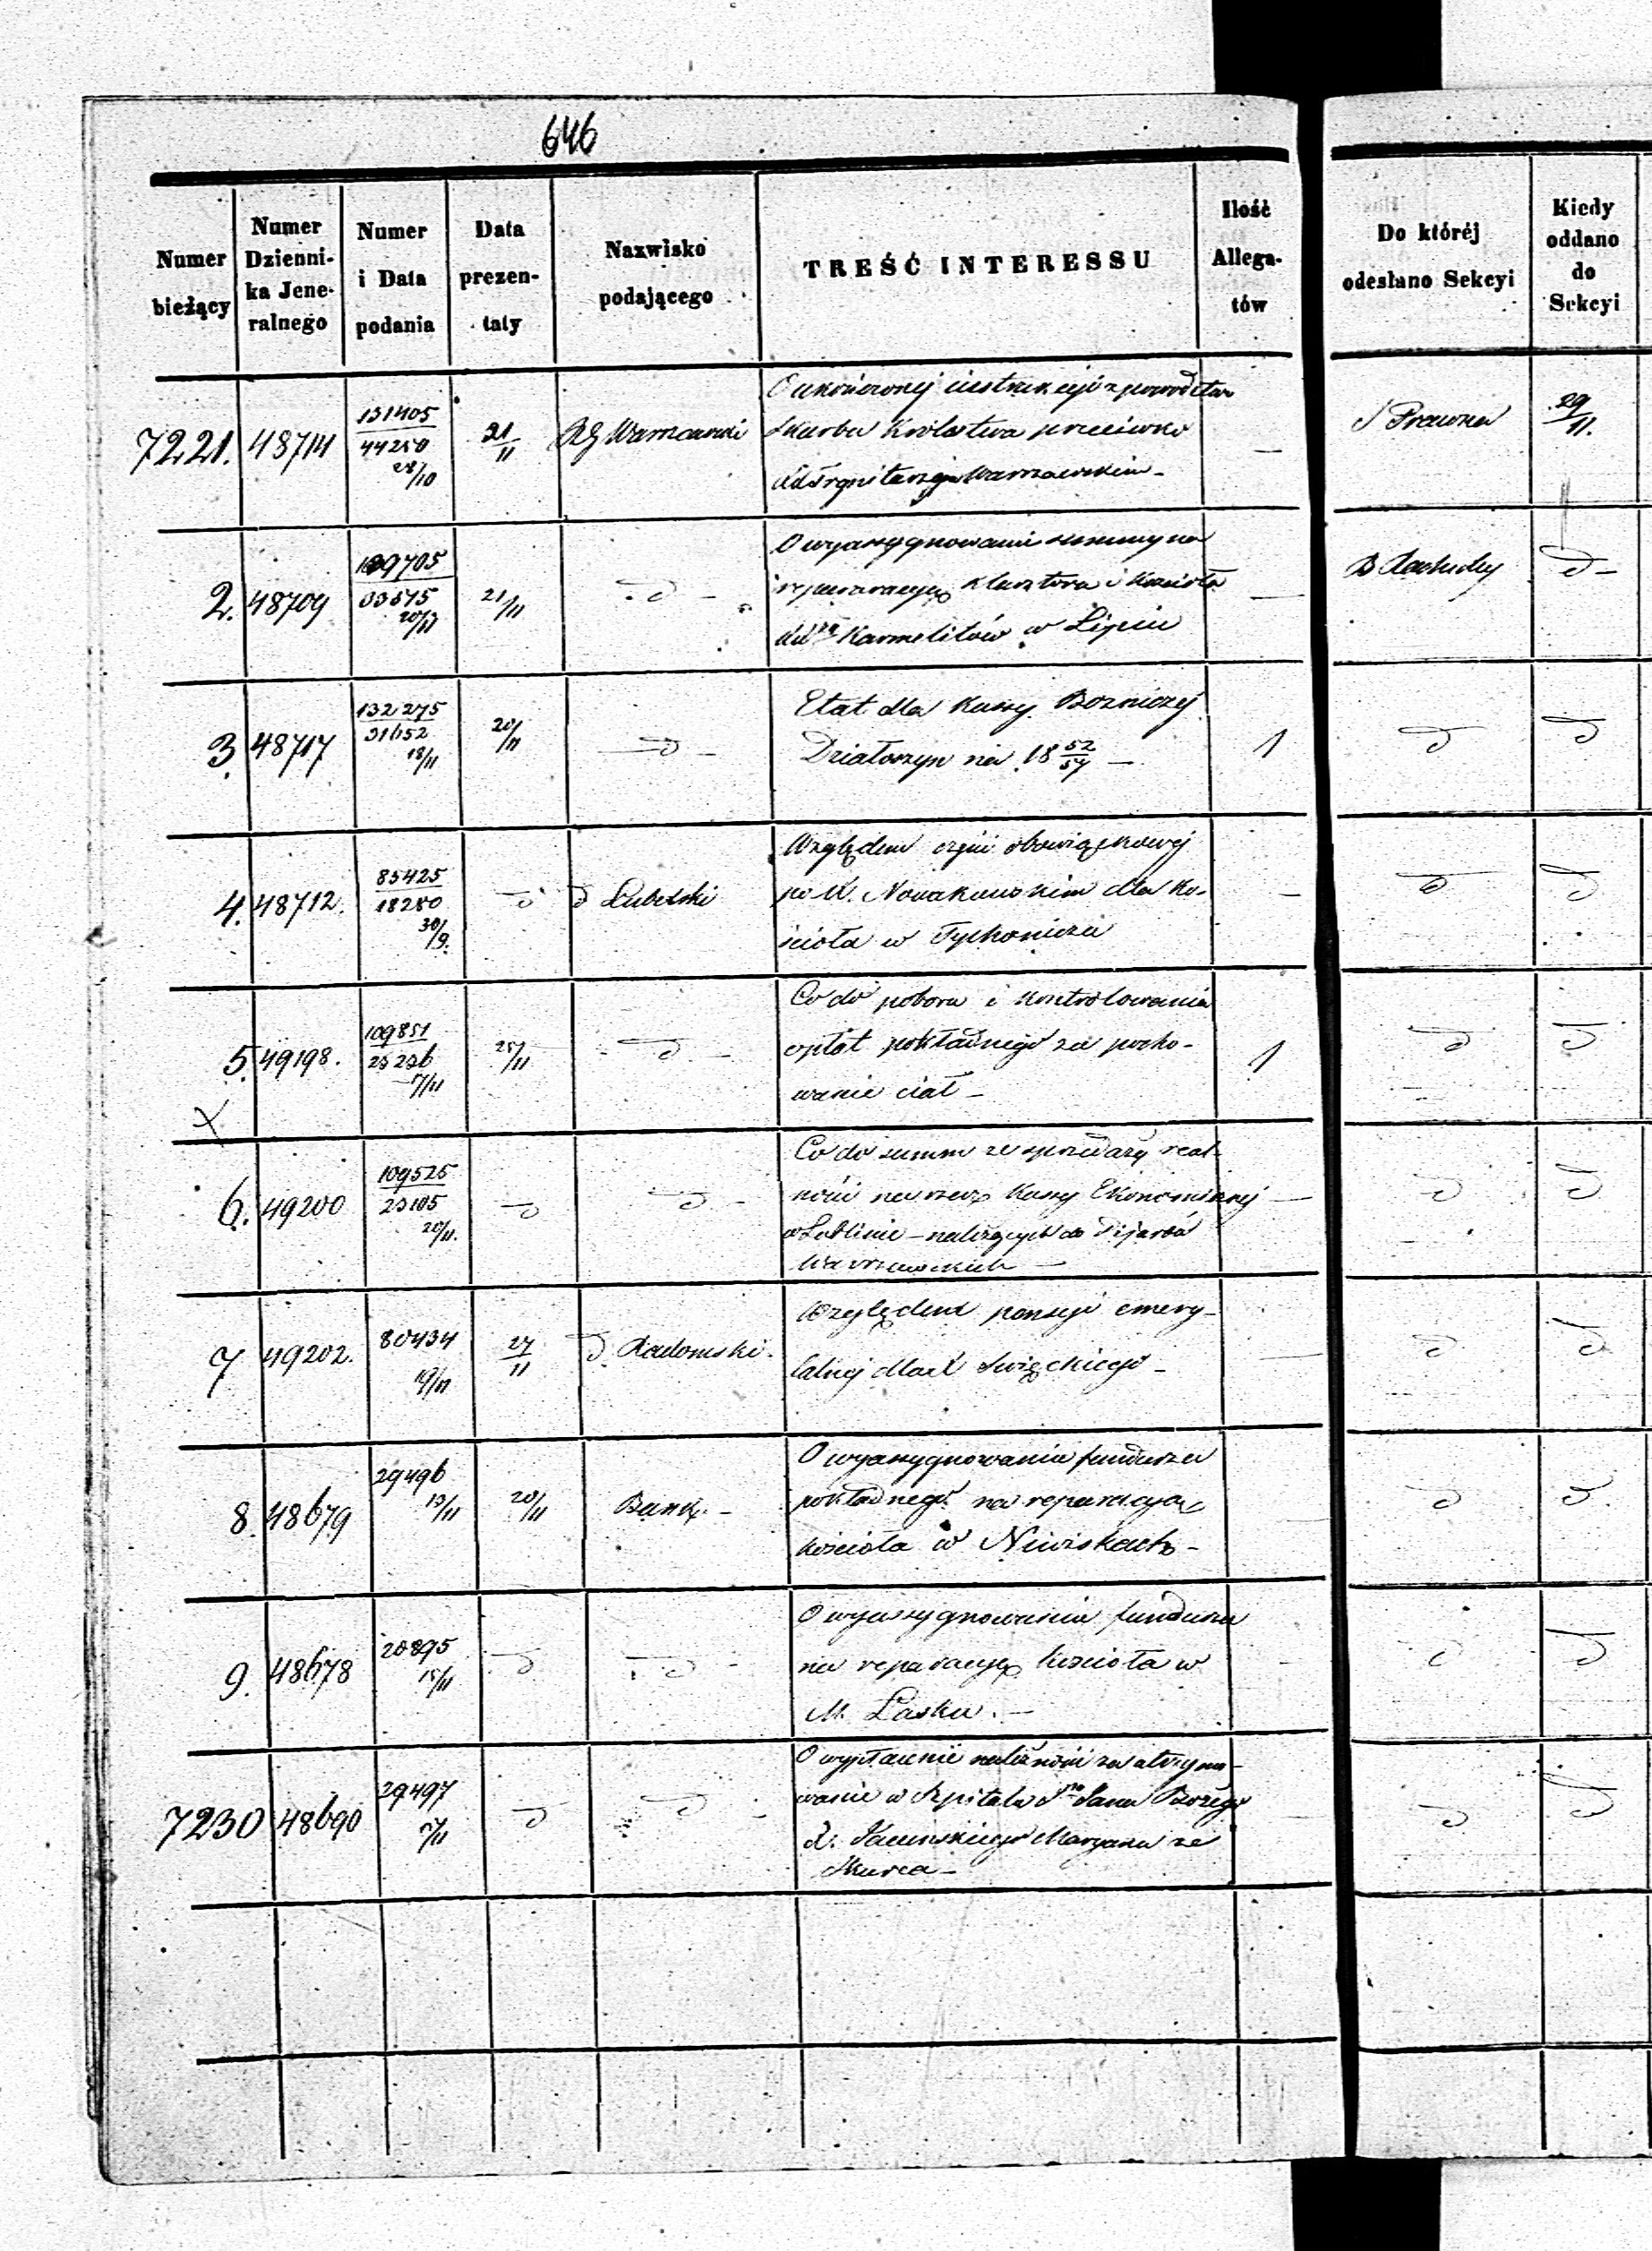 646
Numer bieżący
Numer Dzienni- ka Jene- ralnego
Numer i Data podania
Data prezen- taty
Nazwisko podającego
TREŚĆ INTERESSU
Ilość Allega- tów
Do któréj odesłano Sekcyi
Kiedy oddano do Sekcyi
7221. 48714 131405 44250 28/10 21/11 RG Warszawski
O ukończonej instrukcyi z powodztwa
Skarbu Królestwa przeciwko
Warszawskim –
Prawna 29/11.
2. 48709 33675 20/11 21/11 d –
O wyassygnowanie summy na
reparacyę Klasztora i Kościoła
Karmelitów w Lipiu
B d –
3. 48717 132275 31652 18/11 20/11 – d –
Etat dla Kassy Bozniczej
Działoszyn na 18 52/54 –
1
d d
4. 48712. 85425 18280 30/9. d d Lubelski
Względem części obowiązkowej
po X. Nowakowskim dla Ko-
ścioła w
– d d
5. 49198. 109851 25/11 d –
Co do poboru i kontrolowania
opłat pokładnego za pocho-
wanie ciał –
1
d d
6. 49200 109525 23105 20/11. d d –
Co do summ ze sprzedaży real-
ności na rzecz Kassy Ekonomicznej
w Lublinie – należących do Pijarów
Warszawskich –
– d d
7 49202. 80434 19/11 27/11 d Radomski.
Względem pensyi emery-
talnej dla X Swięckiego –
– d d
8. 48679 29496 13/11 20/11 Bank. –
O wyassygnowanie fundusza
pokładnego na reparacyą
kościoła w Niwiskach –
d d.
9. 48678 28895 15/11 d d –
O wyassygnowanie fundusza
na reparacyę Kościoła w
M. Łasku. –
– d d
7230 48690 29497 d d –
O wypłacenie należności za utrzymy-
wanie w Szpitalu Sgo Jana Bożego
X. Maryana ze
– d d